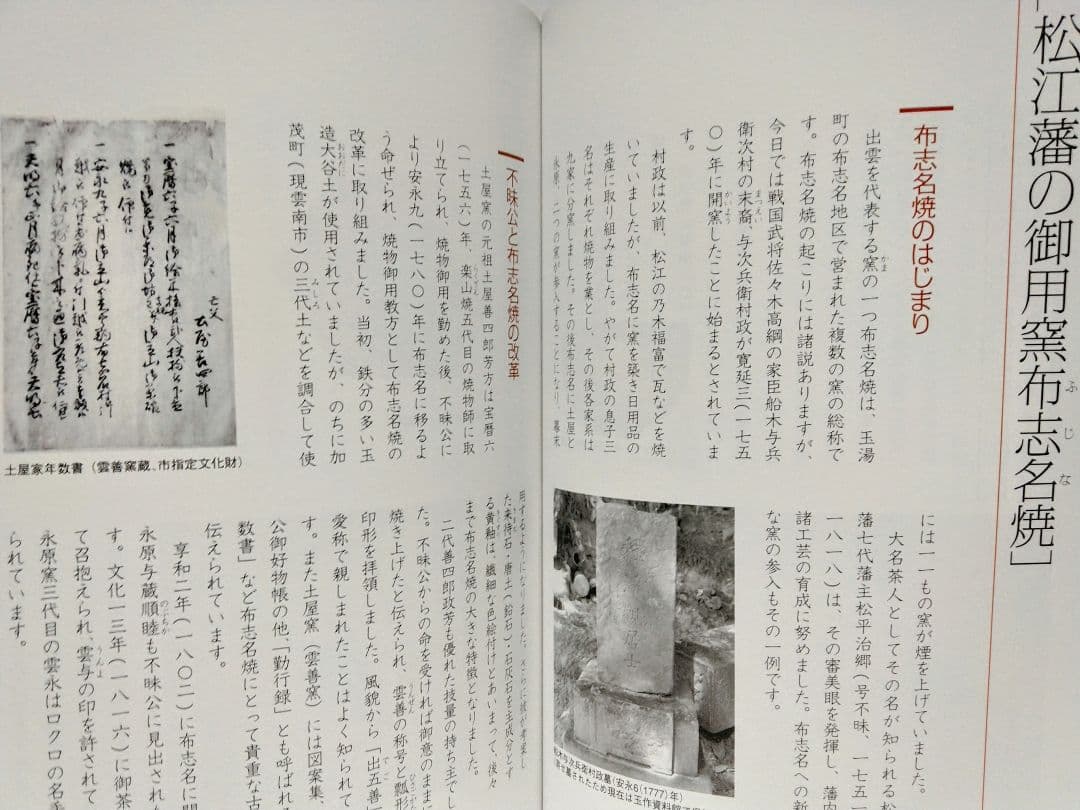 「松江藩の御用窯布志名焼」
ふじな
布志名焼のはじまり
出雲を代表する窯の一つ布志名焼は、玉湯
かま
町の布志名地区で営まれた複数の窯の総称で
す。布志名焼の起こりには諸説ありますが、
今日では戦国武将佐々木高綱の家臣船木与兵
衛次村の末裔、与次兵衛村政が寛延三(一七五
まつえい
〇)年に開窯したことに始まるとされていま
かいよう
す。
村政は以前、松江の乃木福富で瓦などを焼
いていましたが、布志名に窯を築き日用品の
生産に取り組みました。やがて村政の息子三
名はそれぞれ焼物を業とし、その後各家系は
九家に分窯しました。その後布志名に土屋と
永原、二つの窯が参入することになり、幕末
には一一もの窯が煙を上げていました。
大名茶人としてその名が知られる松
藩七代藩主松平治郷(号不昧、一七五一
一八一八)は、その審美眼を発揮し、藩内
諸工芸の育成に努めました。布志名への新
な窯の参入もその一例です。
木与次兵衛村政墓(安永6(1777)年)
不昧公と布志名焼の改革
土屋窯の元祖土屋善四郎芳方は宝暦六
(一七五六)年、楽山焼五代目の焼物師に取
り立てられ、焼物御用を勤めた後、不昧公に
より安永九(一七八〇)年に布志名に移るよ
う命ぜられ、焼物御用教方として布志名焼の
改革に取り組みました。当初、鉄分の多い玉
造大谷土が使用されていましたが、のちに加
おおだに
茂町(現雲南市)の三代土などを調合して使
みしろ
用するようになりました。さらに彼が考案し
た来待石・唐土(鉛石)・石灰石を主成分とす
る黄釉は、繊細な色絵付けとあいまって、後々
まで布志名焼の大きな特徴となりました。
二代善四郎政芳も優れた技量の持ち主でし
た。不昧公からの命を受ければ御意のまま
焼き上げたと伝えられ、雲善の称号と瓢形
うんぜん
印形を拝領しました。風貌から「出五善
でご
愛称で親しまれたことはよく知られて
す。また土屋窯(雲善窯)には図案集、
公御好物帳の他、「勤行録」とも呼ばれ
数書」など布志名焼にとって貴重な古
伝えられています。
享和二年(一八〇二)に布志名に開
永原与蔵順睦も不昧公に見出された
のぶちか
す。文化一三年(一八一六)に御茶
て召抱えられ、雲与の印を許されて
うんよ
永原窯三代目の雲永はロクロの名手
られています。
土屋家年数書(雲善窯蔵、市指定文化財)